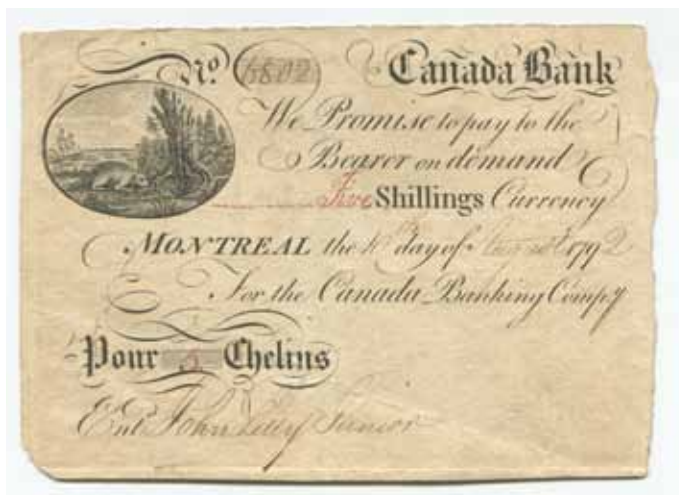 No 6802 Canada Bank
We Promise to pay to the
Bearer on demand
Five Shillings Currency
MONTREAL the 10th day of August 1792
For the Canada Banking Compy
Pour 5 Chelins
Entd John Lilly Junior